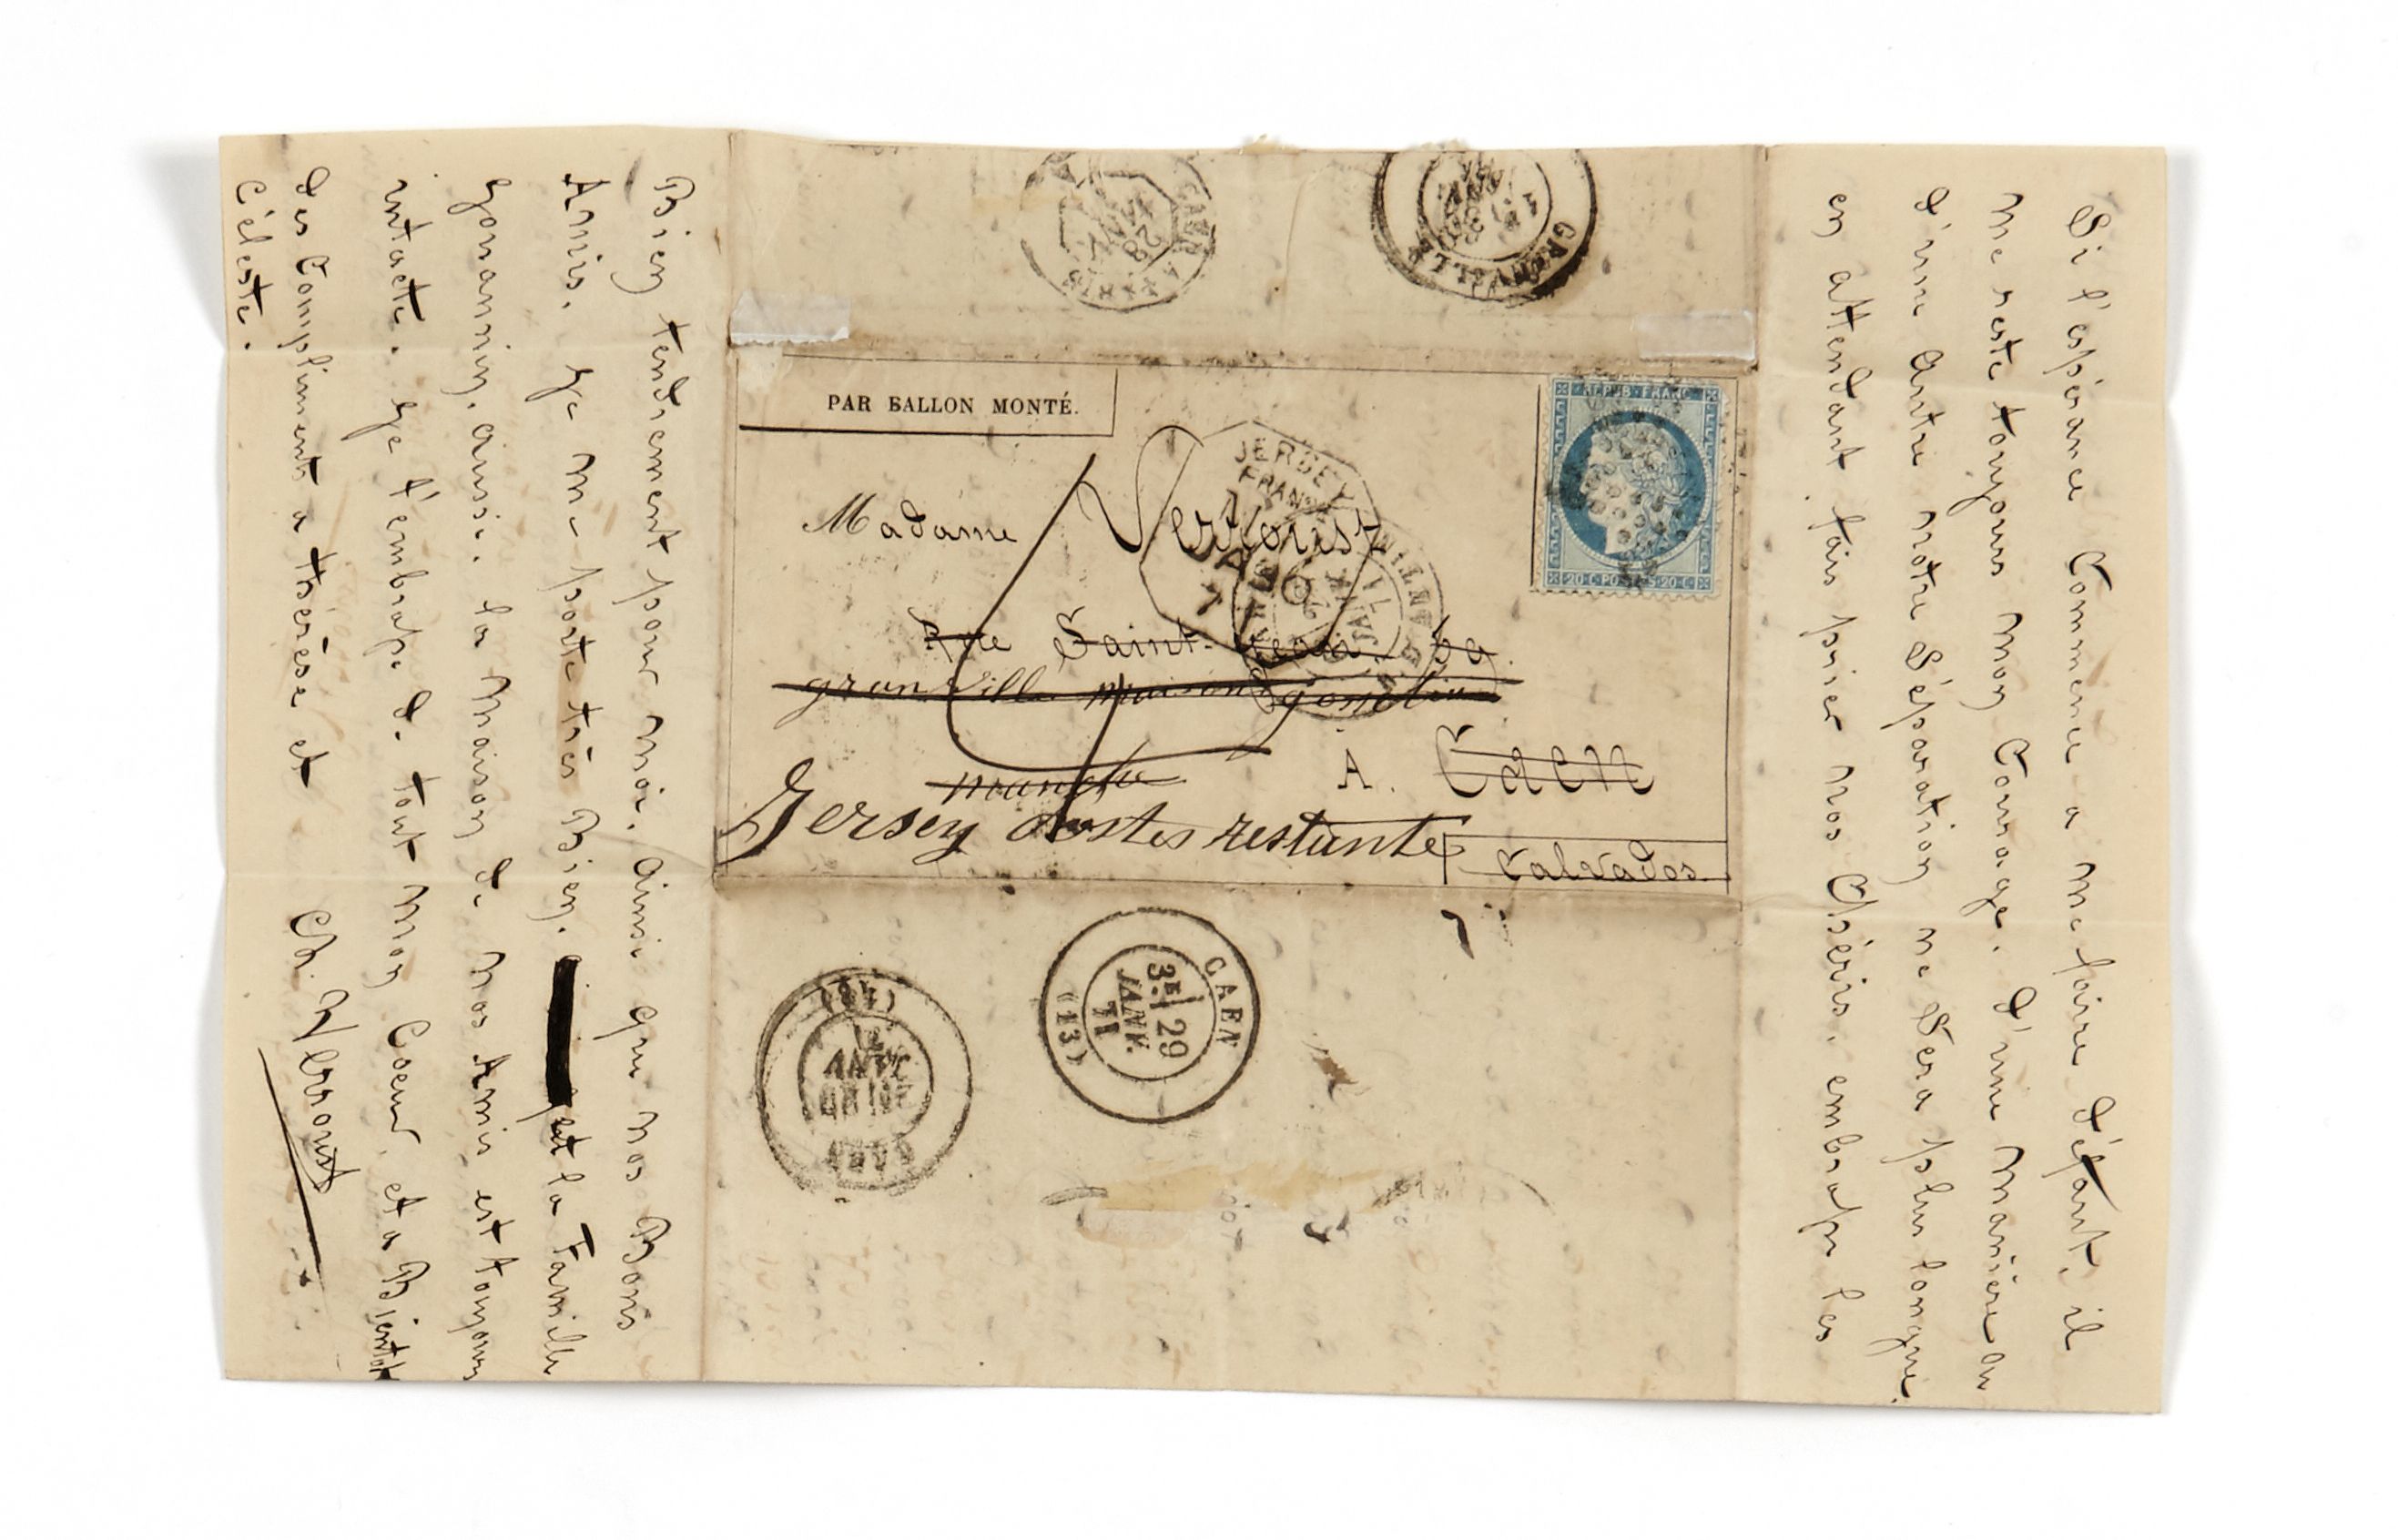 Si l'espérance Commence a me faire défaut, il
me reste toujours mon Courage. d'une manière ou
d'une autre notre Séparation ne Sera plus longue.
en attendant fais prier nos Chéris. embrasse les
Bien tendrement pour moi. ainsi que nos Bons
Amis. Je me porte très Bien. et la Famille
Jouannin, aussi. la maison de nos amis est toujours
intacte. Je t'embrasse de tout mon Coeur, et a Bientôt
des Compliments a thérèse et
Céleste.
PAR BALLON MONTÉ.
REPUB. FRANC.
20 C. POSTES 20 C.
Madame
JERSEY
FRANCE
Rue Saint-Jean. 59.
granville maison gosselin
manche
A. Caen
Jersey postes restante
Calvados
GRANVILLE
CAEN A PARIS
28
CAEN
3E 29
JANV.
71
(13)